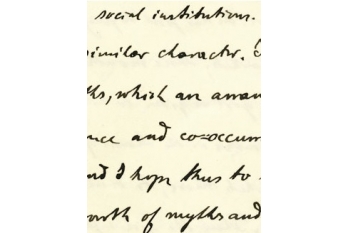 social institutions.
similar character.
ths, which are
nce and co=occurr
nd I hope thus to
owth of myths and